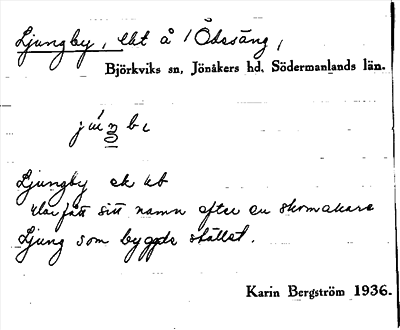 Ljungby, lht å 1 Ödesäng,
Björkviks sn, Jönåkers hd, Södermanlands län.
Ljungby ek kb
har fått sitt namn efter en skomakare
Ljung som byggde stället.
Karin Bergström 1936.